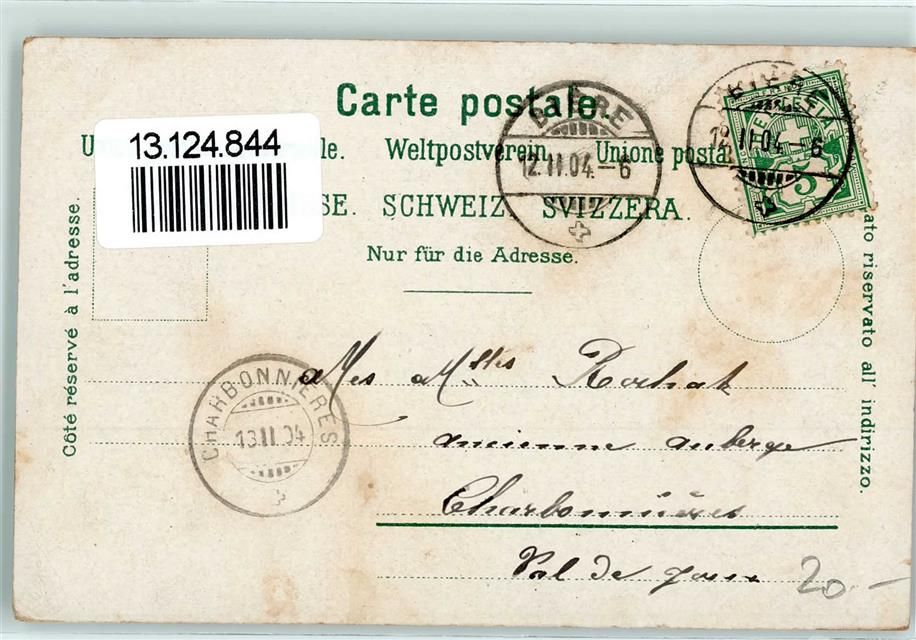 Carte postale.
13.124.844
Weltpostverein. Unione posta
SE. SCHWEIZ. SVIZZERA.
Nur für die Adresse.
Côté réservé à l'adresse.
ato riservato all' indirizzo.
BIÈRE
12.II.04.–6
12.II.04.–6
HELVETIA
5
CHARBONNIÈRES
13.II.04
Mes Mlles Rochat
ancienne auberge
Charbonnières
Val de Joux
20.–